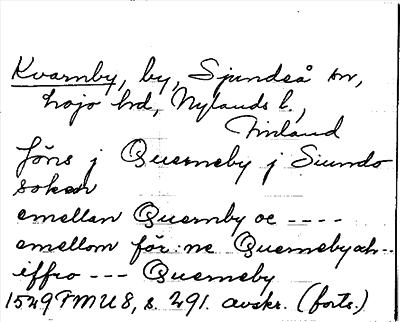 Kvarnby, by, Sjundeå sn,
Lojo hd, Nylands l.,
Finland
föns j Querneby j Siundo
soken
emellan Quernby oc ----
emellom för:ne Querneby ach--
iffro --- Querneby
1529 FMU 8, s. 291. avskr. (forts.)